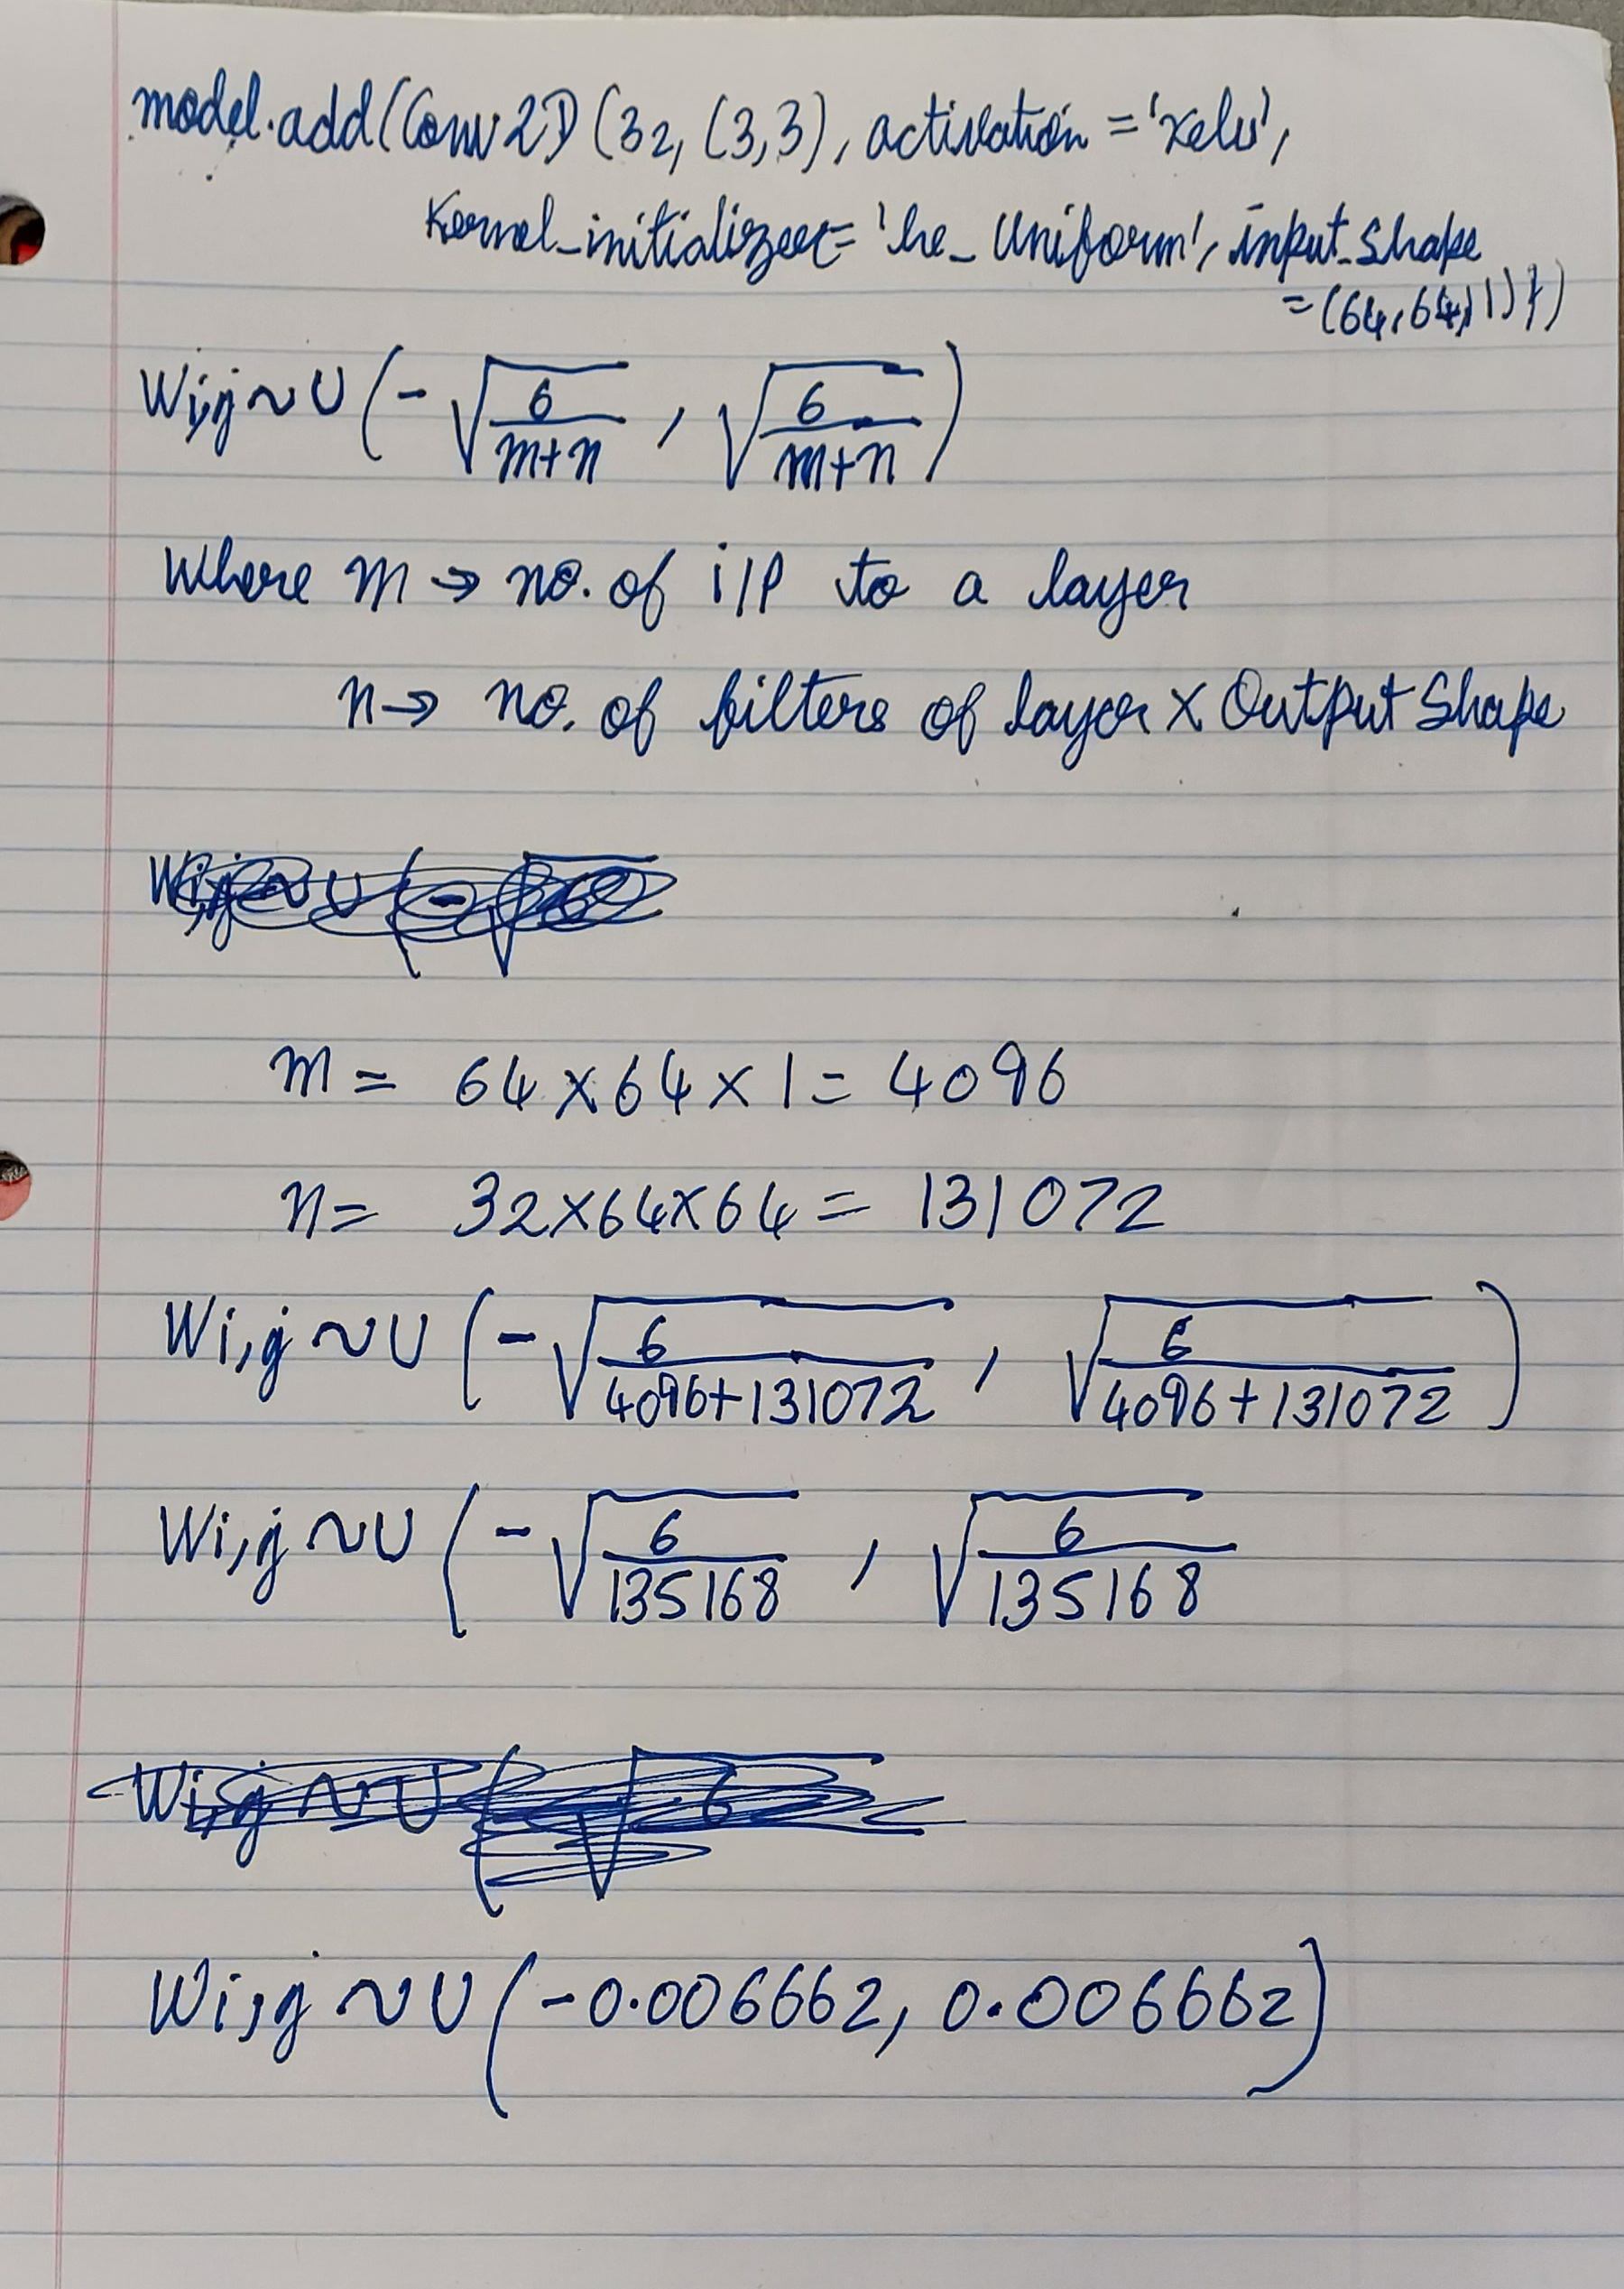 model.add(Conv2D(32, (3,3), activation = 'relu',
Kernel_initializer= 'he_Uniform', input_shape
=(64,64,1)})
Wi,j ~ U (-√(6/(m+n)), √(6/(m+n)))
Where m → no. of i/p to a layer
n → no. of filters of layer x Output Shape
m = 64 x 64 x 1 = 4096
n = 32x64x64 = 131072
Wi,j ~ U (-√(6/(4096+131072)), √(6/(4096+131072)))
Wi,j ~ U (-√(6/135168), √(6/135168)
Wi,j ~ U (-0.006662, 0.006662)